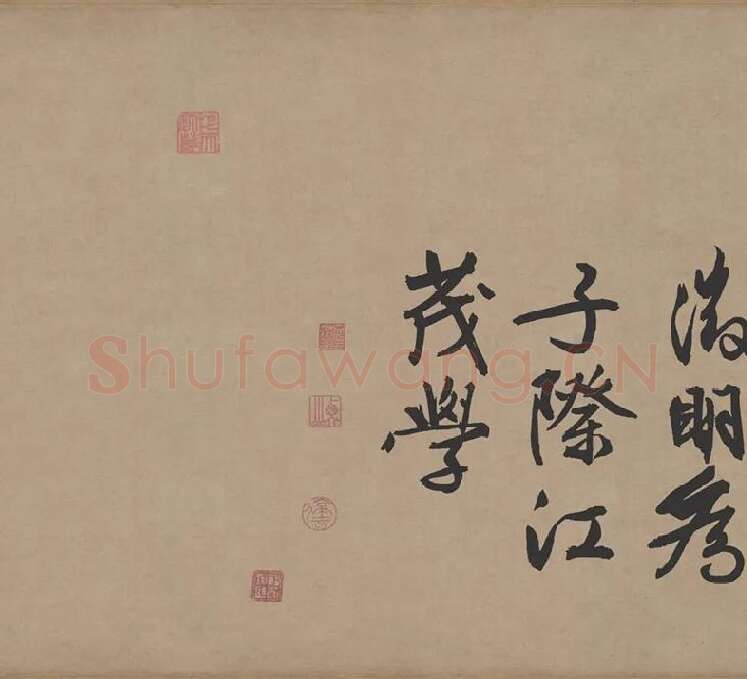 徵明為
子際江
茂學
Shufawang.CN